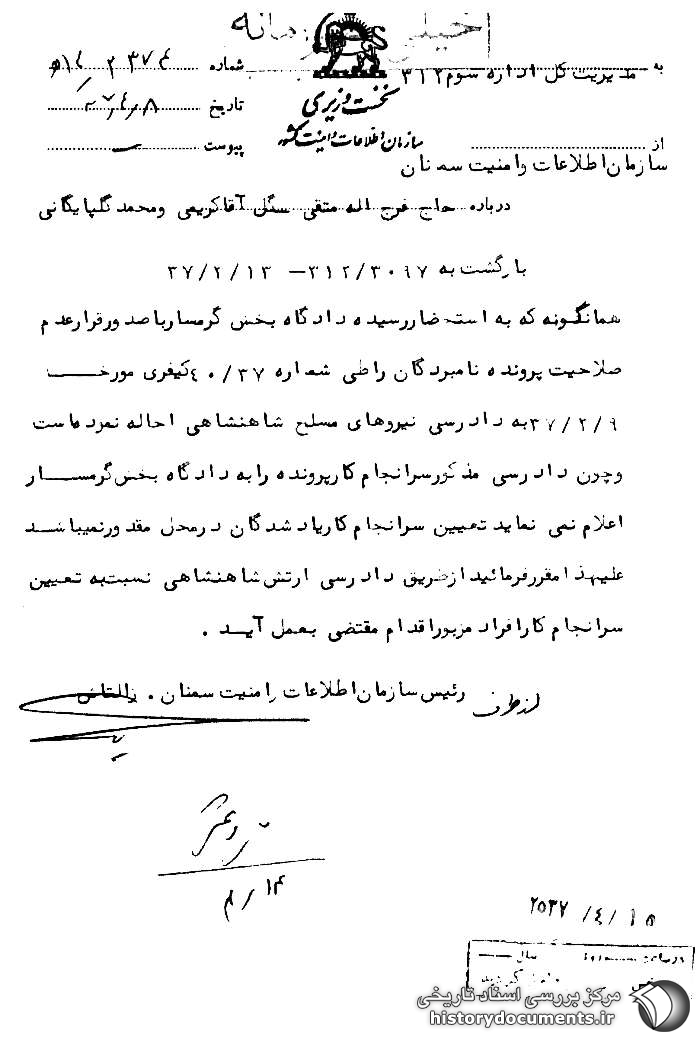 خیلی محرمانه
به مدیریت کل اداره سوم ۳۱۲
شماره
تاریخ ۳۷/۴/۸
پیوست
نخست وزیری
سازمان اطلاعات و امنیت کشور
از سازمان اطلاعات و امنیت سمنان
درباره حاج فرج اله متقی سنگی آقاکریمی و محمد گلپایگانی
بازگشت به ۳۱۲/۳۰۹۷ – ۳۷/۲/۱۳
همانگونه که به استحضار رسیده دادگاه بخش گرمسار با صدور قرار عدم
صلاحیت پرونده نامبردگان را طی شماره ۴۰/۳۷ کیفری مورخ
۳۷/۲/۹ به دادرسی نیروهای مسلح شاهنشاهی احاله نموده است
و چون دادرسی مذکور سرانجام کار پرونده را به دادگاه بخش گرمسار
اعلام نمی نماید تعیین سرانجام کار یاد شدگان در محل مقدور نمیباشد
علیهذا مقرر فرمائید از طریق دادرسی ارتش شاهنشاهی نسبت به تعیین
سرانجام کار افراد مزبور اقدام مقتضی بعمل آید .
رئیس سازمان اطلاعات و امنیت سمنان .
از طرف
۴/۱۴
۲۵۳۷/۴/۱۵
مرکز بررسی اسناد تاریخی
historydocuments.ir